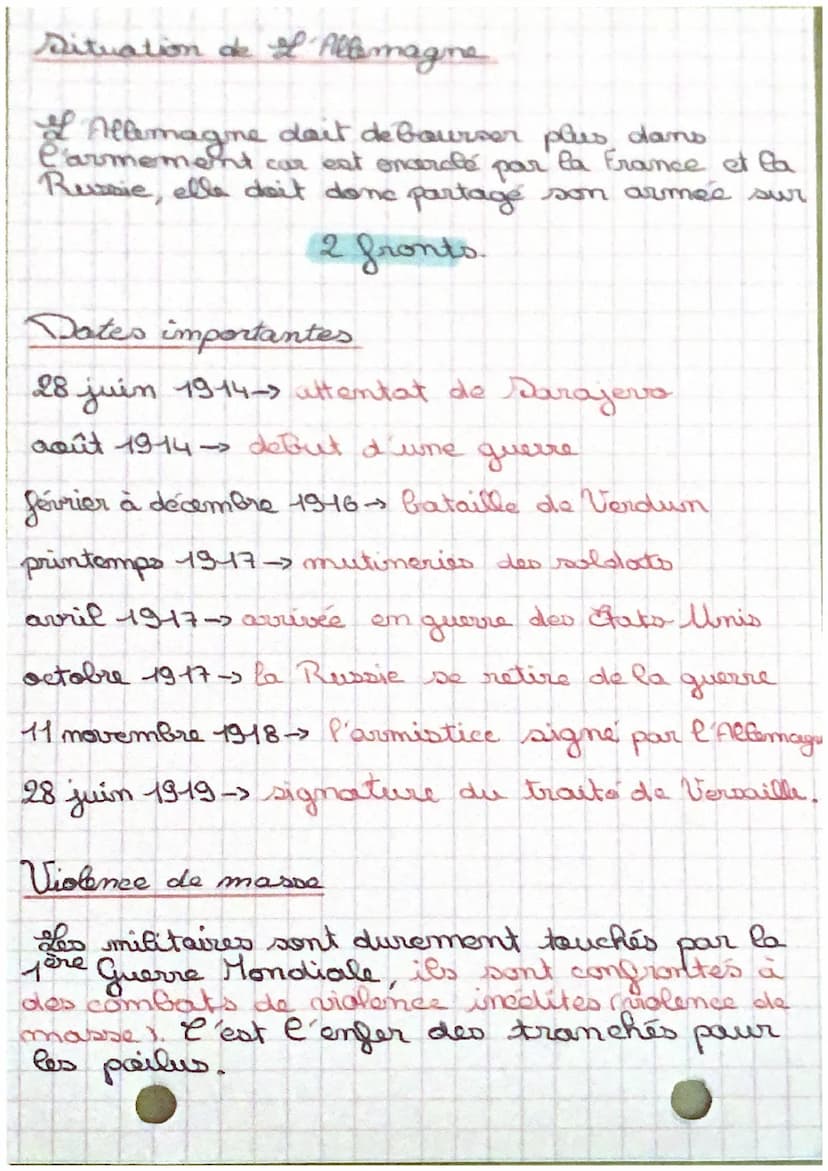 Situation de L'Allemagne
L'Allemagne doit débourser plus dans
l'armement car est encerclé par la France et la
Russie, elle doit donc partagé son armée sur
2 fronts.
Dates importantes
28 juin 1914→ attentat de Sarajevo
août 1914→ début d'une guerre
février à décembre 1916→ bataille de Verdun
printemps 1917→ mutineries des soldats
avril 1917→ arrivée en guerre des États-Unis
octobre 1917→ la Russie se retire de la guerre
11 novembre 1918→ l'armistice signé par l'Allemagne
28 juin 1919→ signature du traité de Versaille.
Violence de masse
Les militaires sont durement touchés par la
1ère Guerre Mondiale, ils sont confrontés à
des combats de violence inédites (violence de
masse). C'est l'enfer des tranchés pour
les poilus.